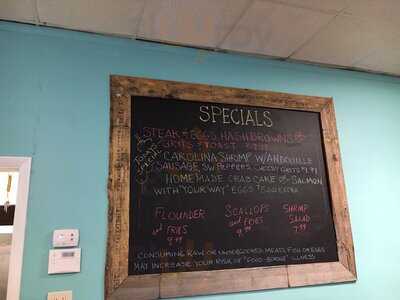 SPECIALS
STEAK + EGGS, HASHBROWNS OR
GRITS + TOAST
CAROLINA SHRIMP W/ANDOUILLE
SAUSAGE, SW. PEPPERS, CHEESY GRITS
HOMEMADE CRAB CAKE OR SALMON
WITH "YOUR WAY" EGGS
FLOUNDER
and
FRIES
9.99
SCALLOPS
and FRIES
9.99
SHRIMP
SALAD
7.99
CONSUMING RAW OR UNDERCOOKED MEATS, FISH OR EGGS
MAY INCREASE YOUR RISK OF "FOOD-BORNE" ILLNESS